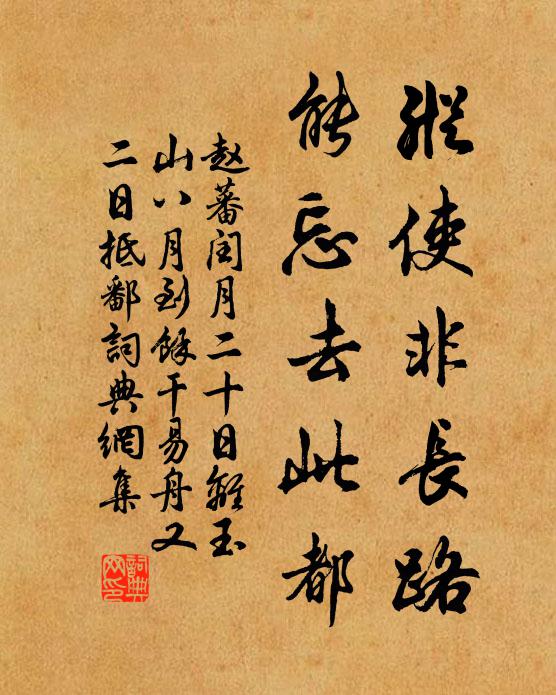 縱使非長路
能忘去此都
赵蕃閏月二十日離玉
山八月到餘干易舟又
二日抵鄱詞典網集
詞典
网印